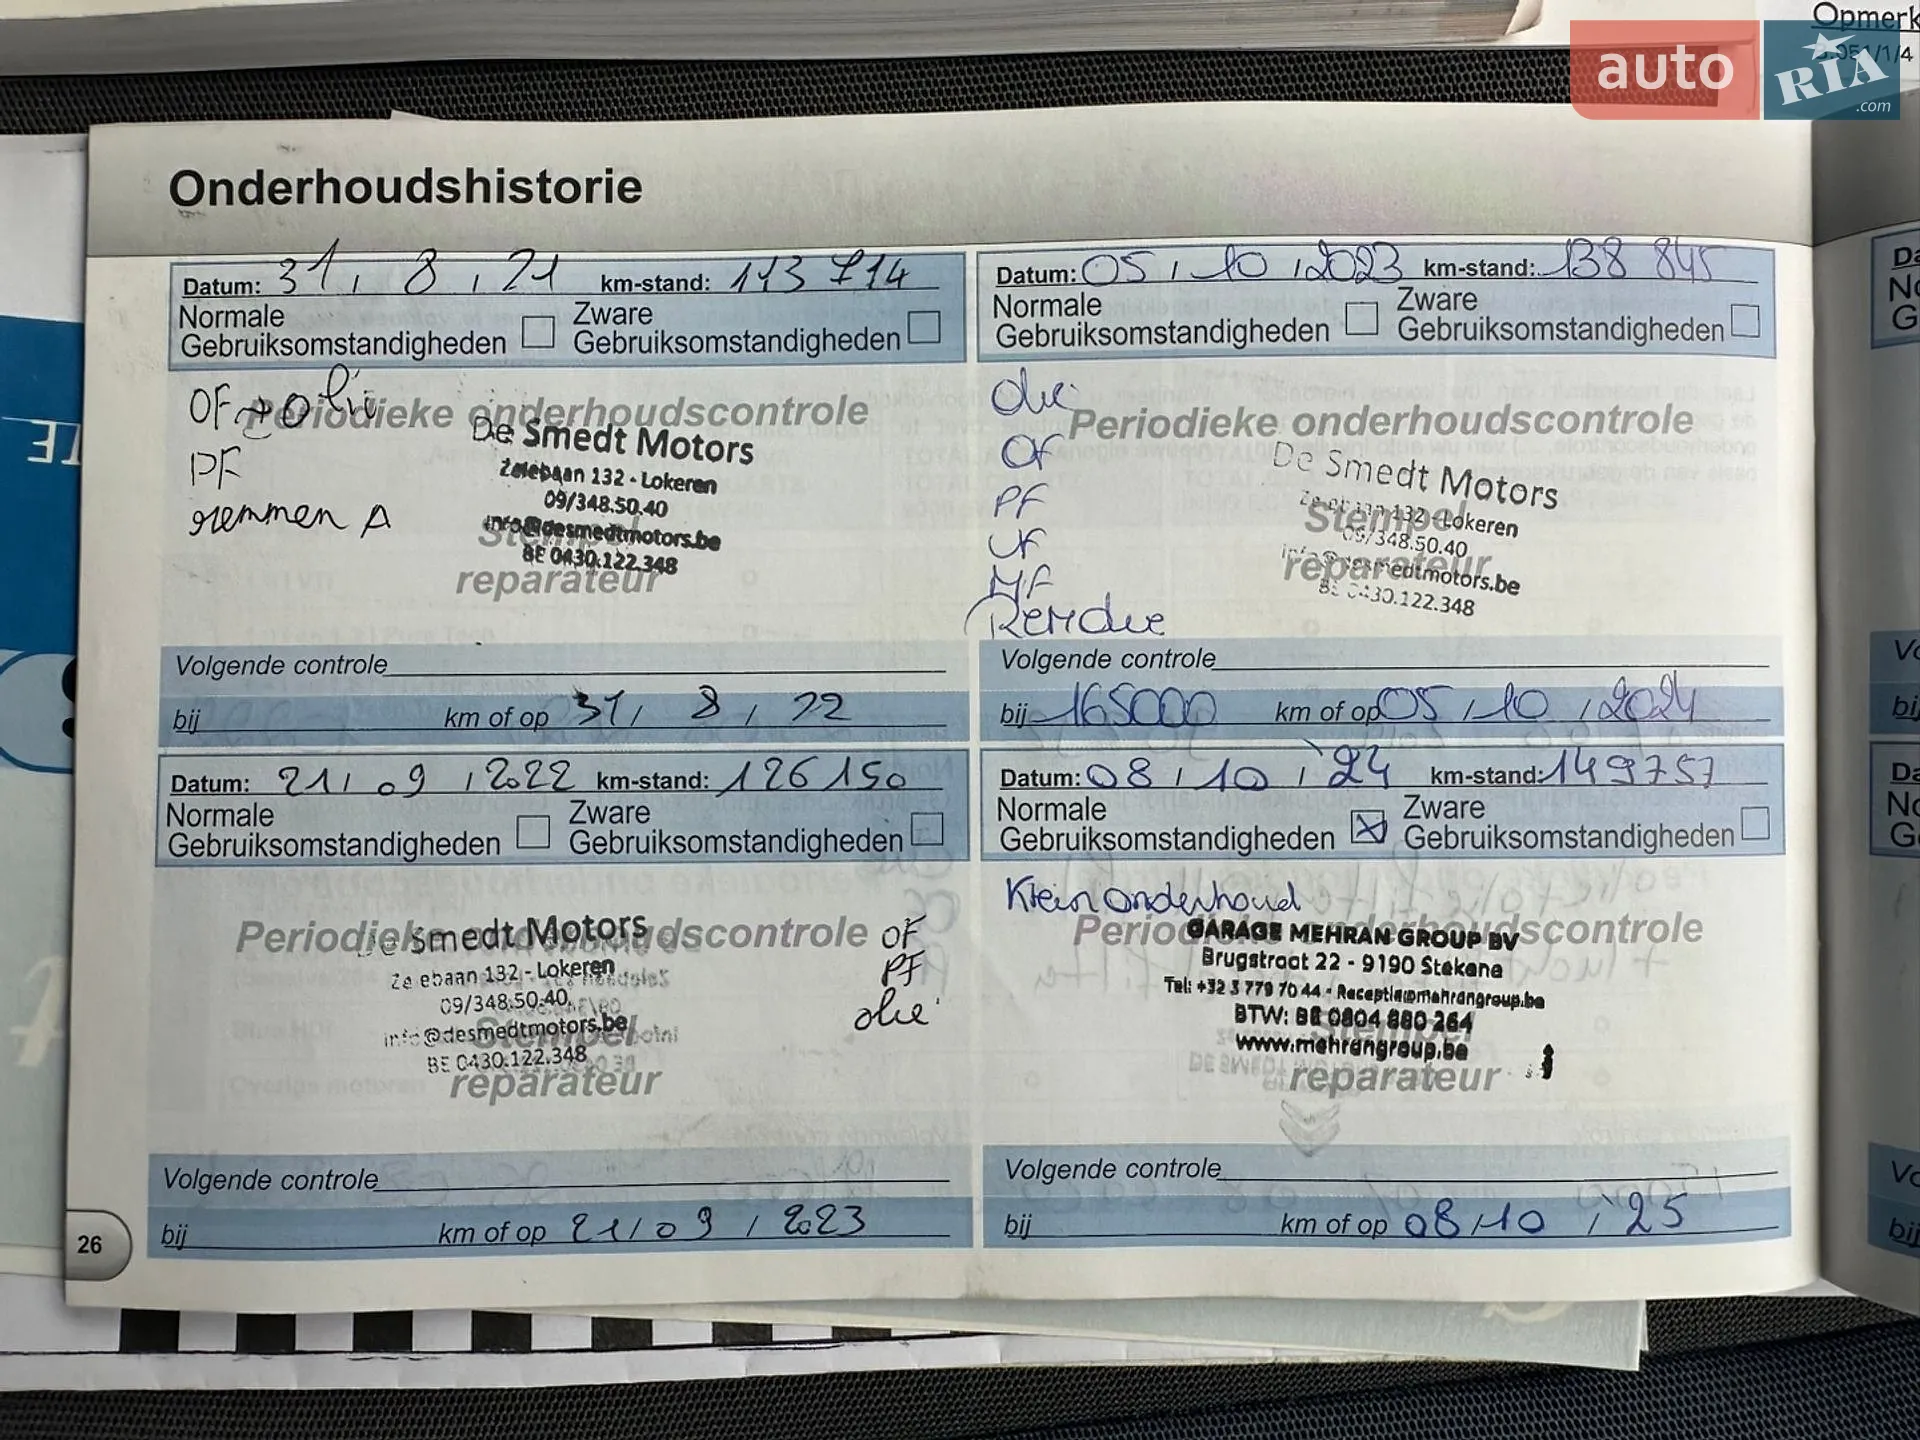 Opmerk
auto RIA .com
Onderhoudshistorie
Datum: 31 / 8 / 21 km-stand: 113 714
Normale Gebruiksomstandigheden Zware Gebruiksomstandigheden
OF + olie
Periodieke onderhoudscontrole
PF
remmen A
De Smedt Motors
Zelebaan 132 - Lokeren
09/348.50.40
info@desmedtmotors.be
BE 0430.122.348
Stempel
reparateur
Volgende controle
bij km of op 31 / 8 / 22
Datum: 05 / 10 / 2023 km-stand: 138 845
Normale Gebruiksomstandigheden Zware Gebruiksomstandigheden
olie
Periodieke onderhoudscontrole
OF
PF
MF
De Smedt Motors
Zelebaan 132 - Lokeren
09/348.50.40
info@desmedtmotors.be
BE 0430.122.348
Stempel
reparateur
Volgende controle
bij 165000 km of op 05 / 10 / 2024
Datum: 21 / 09 / 2022 km-stand: 126 150
Normale Gebruiksomstandigheden Zware Gebruiksomstandigheden
Periodieke onderhoudscontrole
OF
PF
olie
De Smedt Motors
Zelebaan 132 - Lokeren
09/348.50.40
info@desmedtmotors.be
BE 0430.122.348
Stempel
reparateur
Volgende controle
bij km of op 21 / 09 / 2023
Datum: 08 / 10 / 24 km-stand: 149757
Normale Gebruiksomstandigheden Zware Gebruiksomstandigheden
Klein onderhoud
Periodieke onderhoudscontrole
GARAGE MEHRAN GROUP BV
Brugstraat 22 - 9190 Stekene
Tel: +32 3 779 70 44 - Receptie@mehrangroup.be
BTW: BE 0804 880 264
www.mehrangroup.be
Stempel
reparateur
Volgende controle
bij km of op 08 / 10 / 25
26